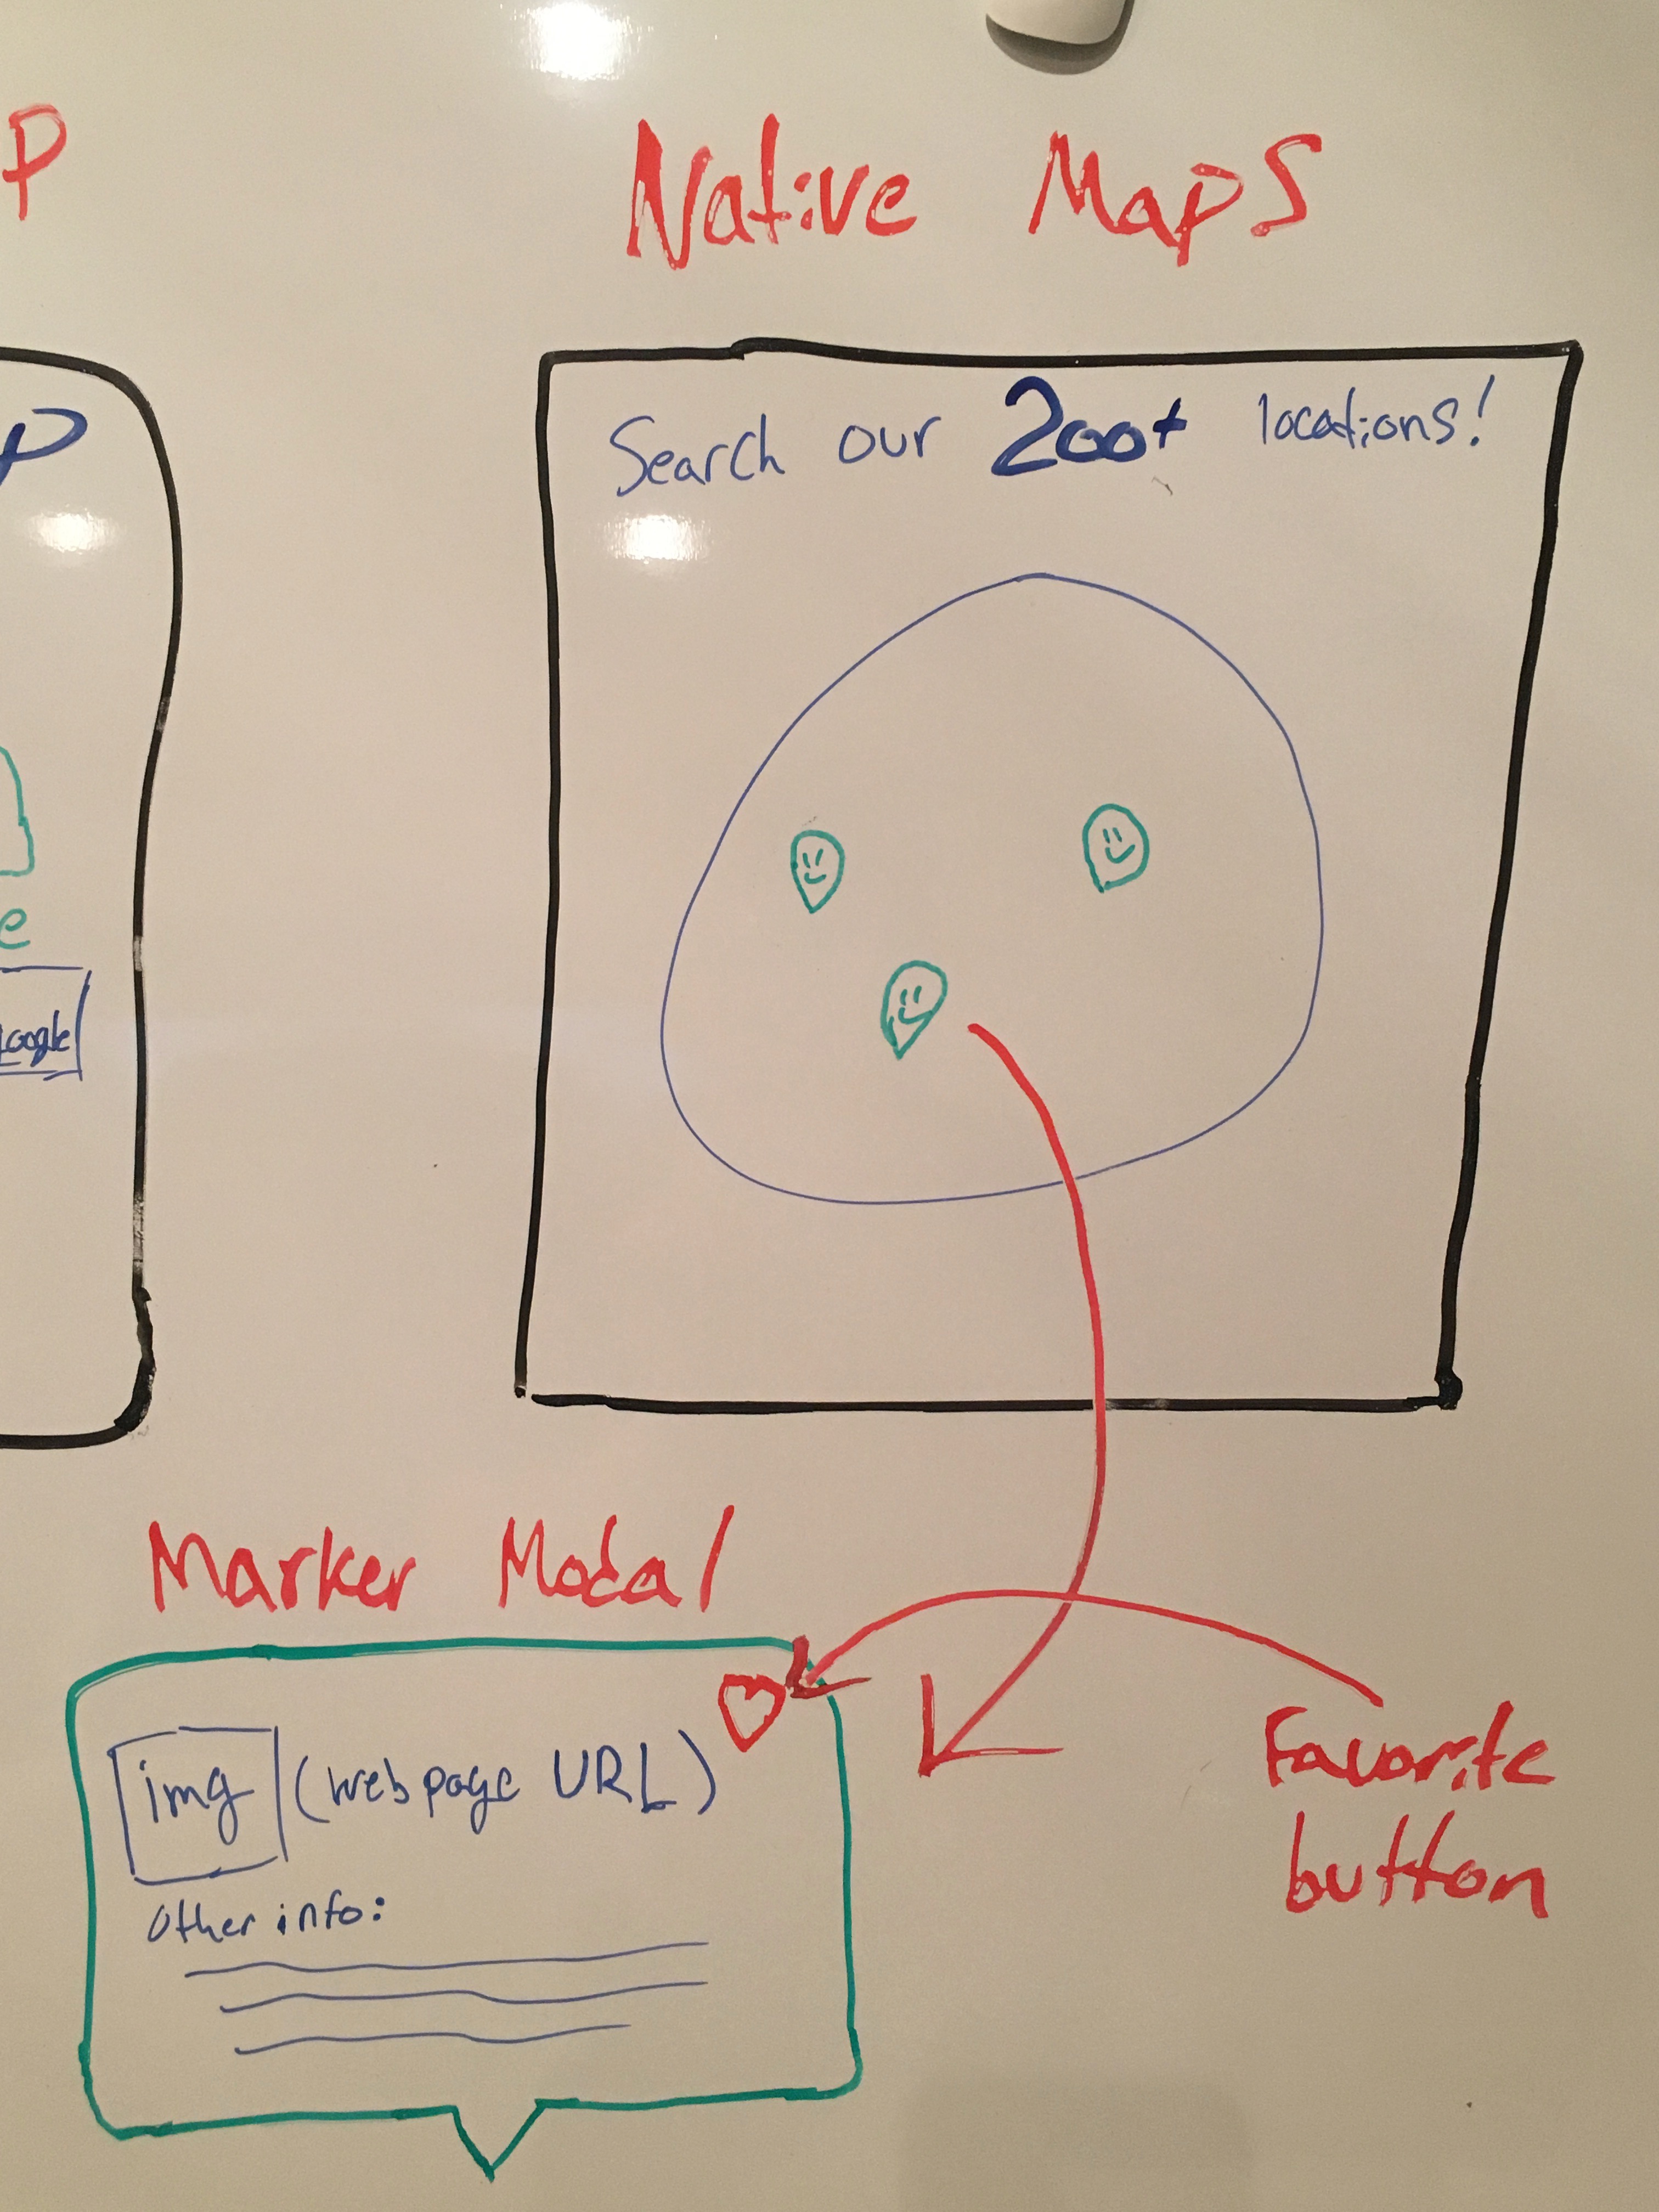 P
Native Maps
P
Search our 200+ locations!
e
oogle
Marker Modal
img (webpage URL)
Other info:
Favorite
button